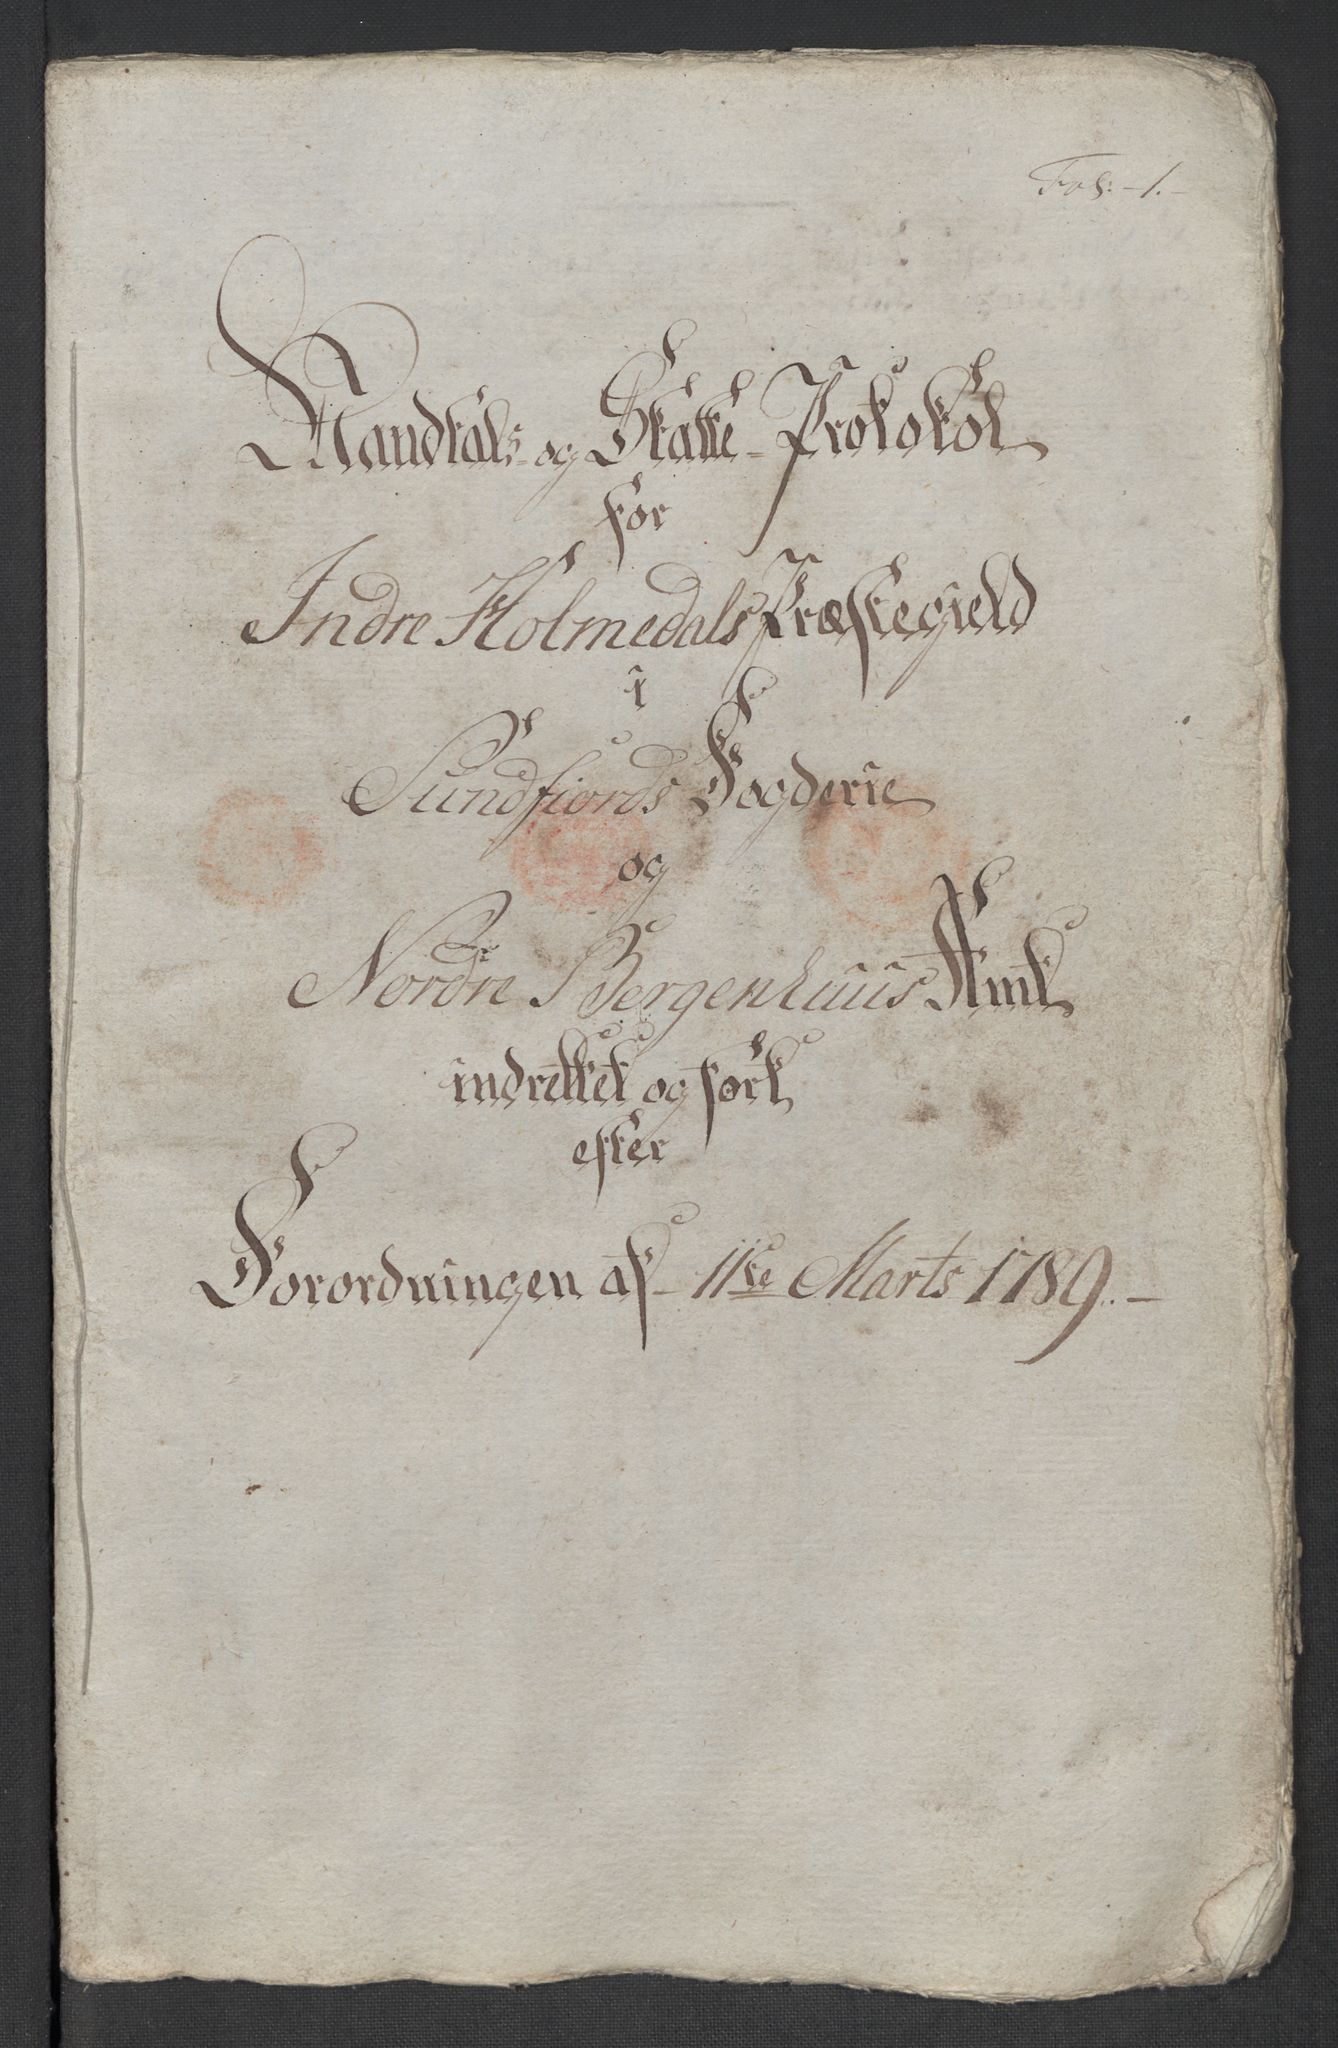 Fol: -1.-
Mandtals- og Skatte-Protokol
for
Indre Holmedals Præstegield
i
Sundfiords Fogderie
og
Nordre Bergenhuus Amt
indrettet og ført
efter
Forordningen af 11te Marts 1789.-